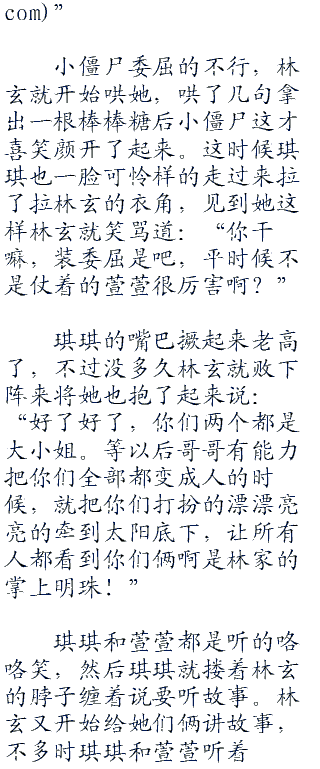 com)”
小僵尸委屈的不行，林
玄就开始哄她，哄了几句拿
出一根棒棒糖后小僵尸这才
喜笑颜开了起来。这时候琪
琪也一脸可怜样的走过来拉
了拉林玄的衣角，见到她这
样林玄就笑骂道：“你干
嘛，装委屈是吧，平时候不
是仗着的萱萱很厉害啊？”
琪琪的嘴巴撅起来老高
了，不过没多久林玄就败下
阵来将她也抱了起来说：
“好了好了，你们两个都是
大小姐。等以后哥哥有能力
把你们全部都变成人的时
候，就把你们打扮的漂漂亮
亮的牵到太阳底下，让所有
人都看到你们俩啊是林家的
掌上明珠！”
琪琪和萱萱都是听的咯
咯笑，然后琪琪就搂着林玄
的脖子缠着说要听故事。林
玄又开始给她们俩讲故事，
不多时琪琪和萱萱听着